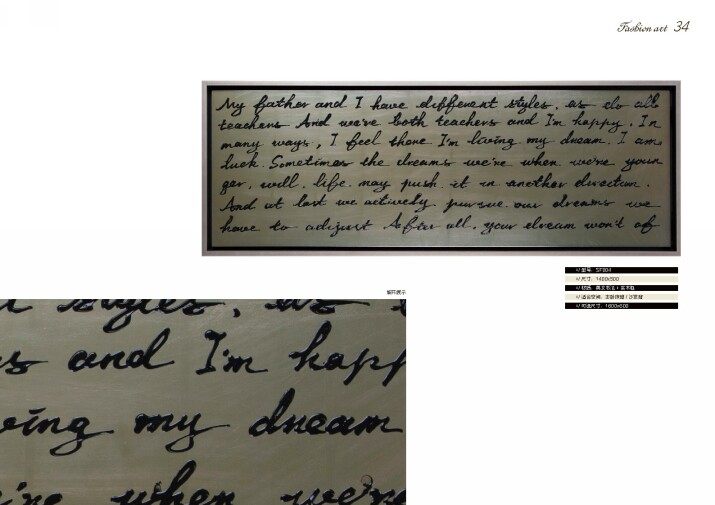 Fashion art 34
My father and I have different styles, as do all
teachers And we're both teachers and I'm happy. In
many ways, I feel there I'm living my dream. I am
luck. Sometimes the dreams we're when we're youn
ger, will. life may push it in another direction.
And at last we actively pursue our dreams we
have to adjust After all, your dream won't of
styles, as
s and I'm happ
ving my dream
're when we're